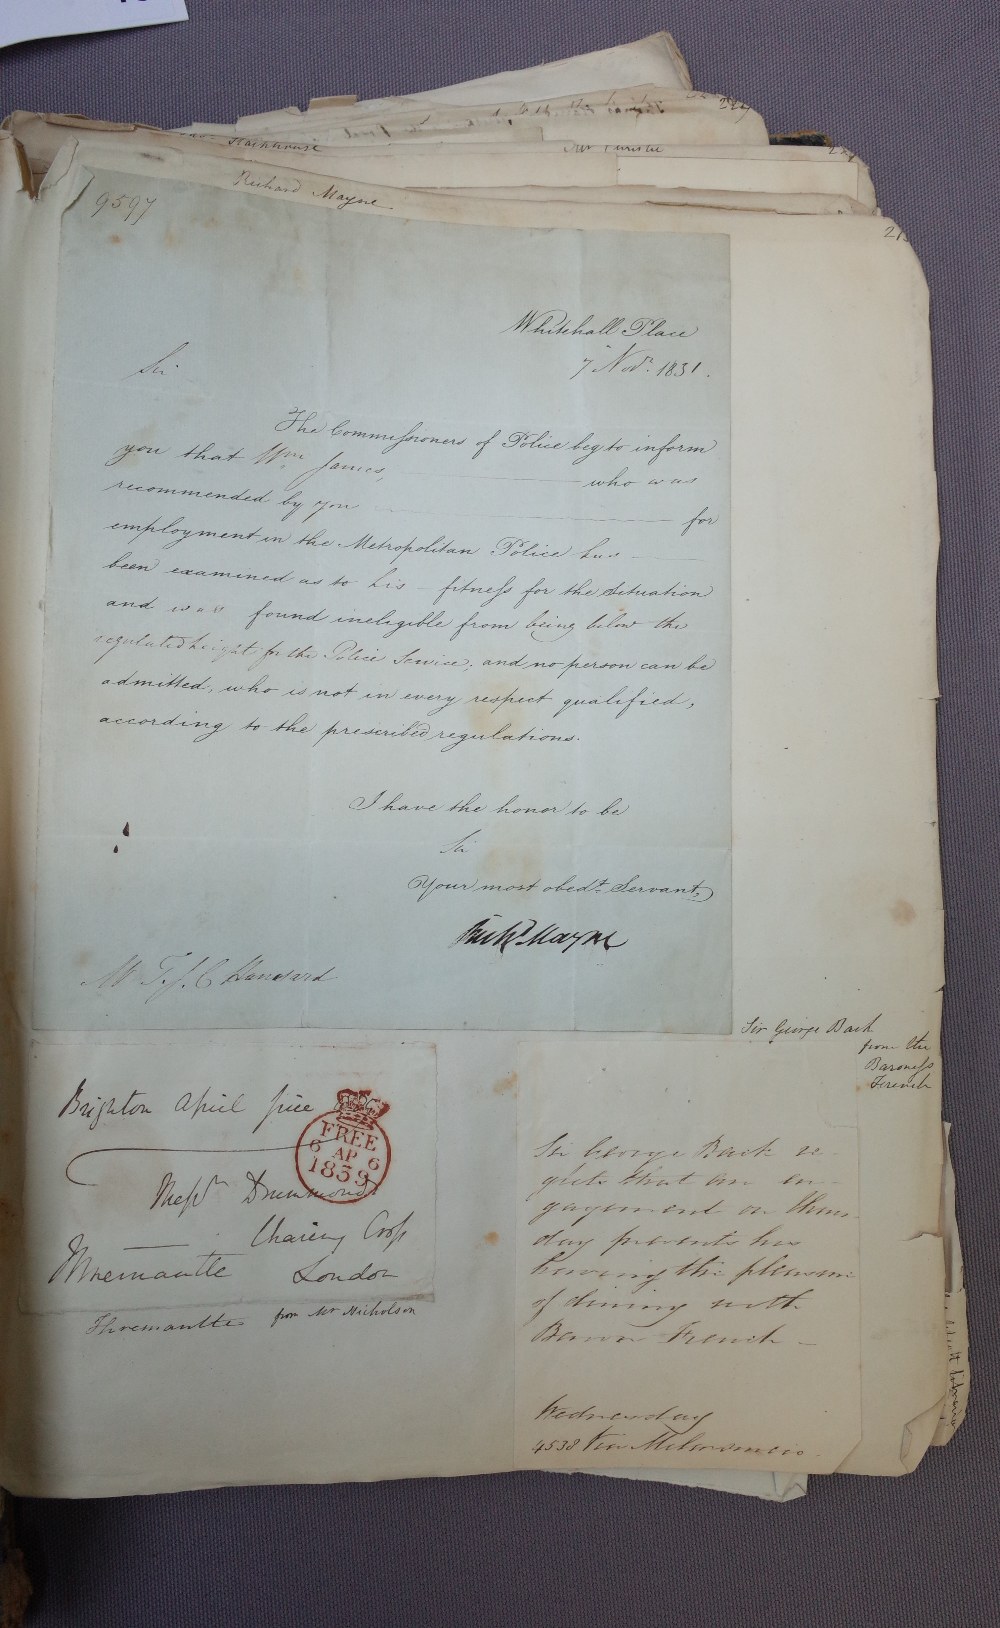 Stackhouse
Richard Mayne
9597
Whitehall Place
7 Novr. 1831.
Sir
The Commissioners of Police beg to inform
you that Wm James, who was
recommended by you for
employment in the Metropolitan Police has
been examined as to his fitness for the situation
and was found ineligible from being below the
regulated height for the Police Service; and no person can be
admitted, who is not in every respect qualified,
according to the prescribed regulations.
I have the honor to be
Sir
Your most obedt. Servant,
Richd Mayne
Mr T. J. C Hansard
Brighton April
FREE
6 AP 6
1839
Messrs Drummond
Charing Cross
London
from Mr Nicholson
Sir George Back
from the
Baroness
French
Sir George Back re-
grets that an en-
gagement on Thurs-
day prevents his
having the pleasure
of dining with
Baron French
Wednesday
4538 Via